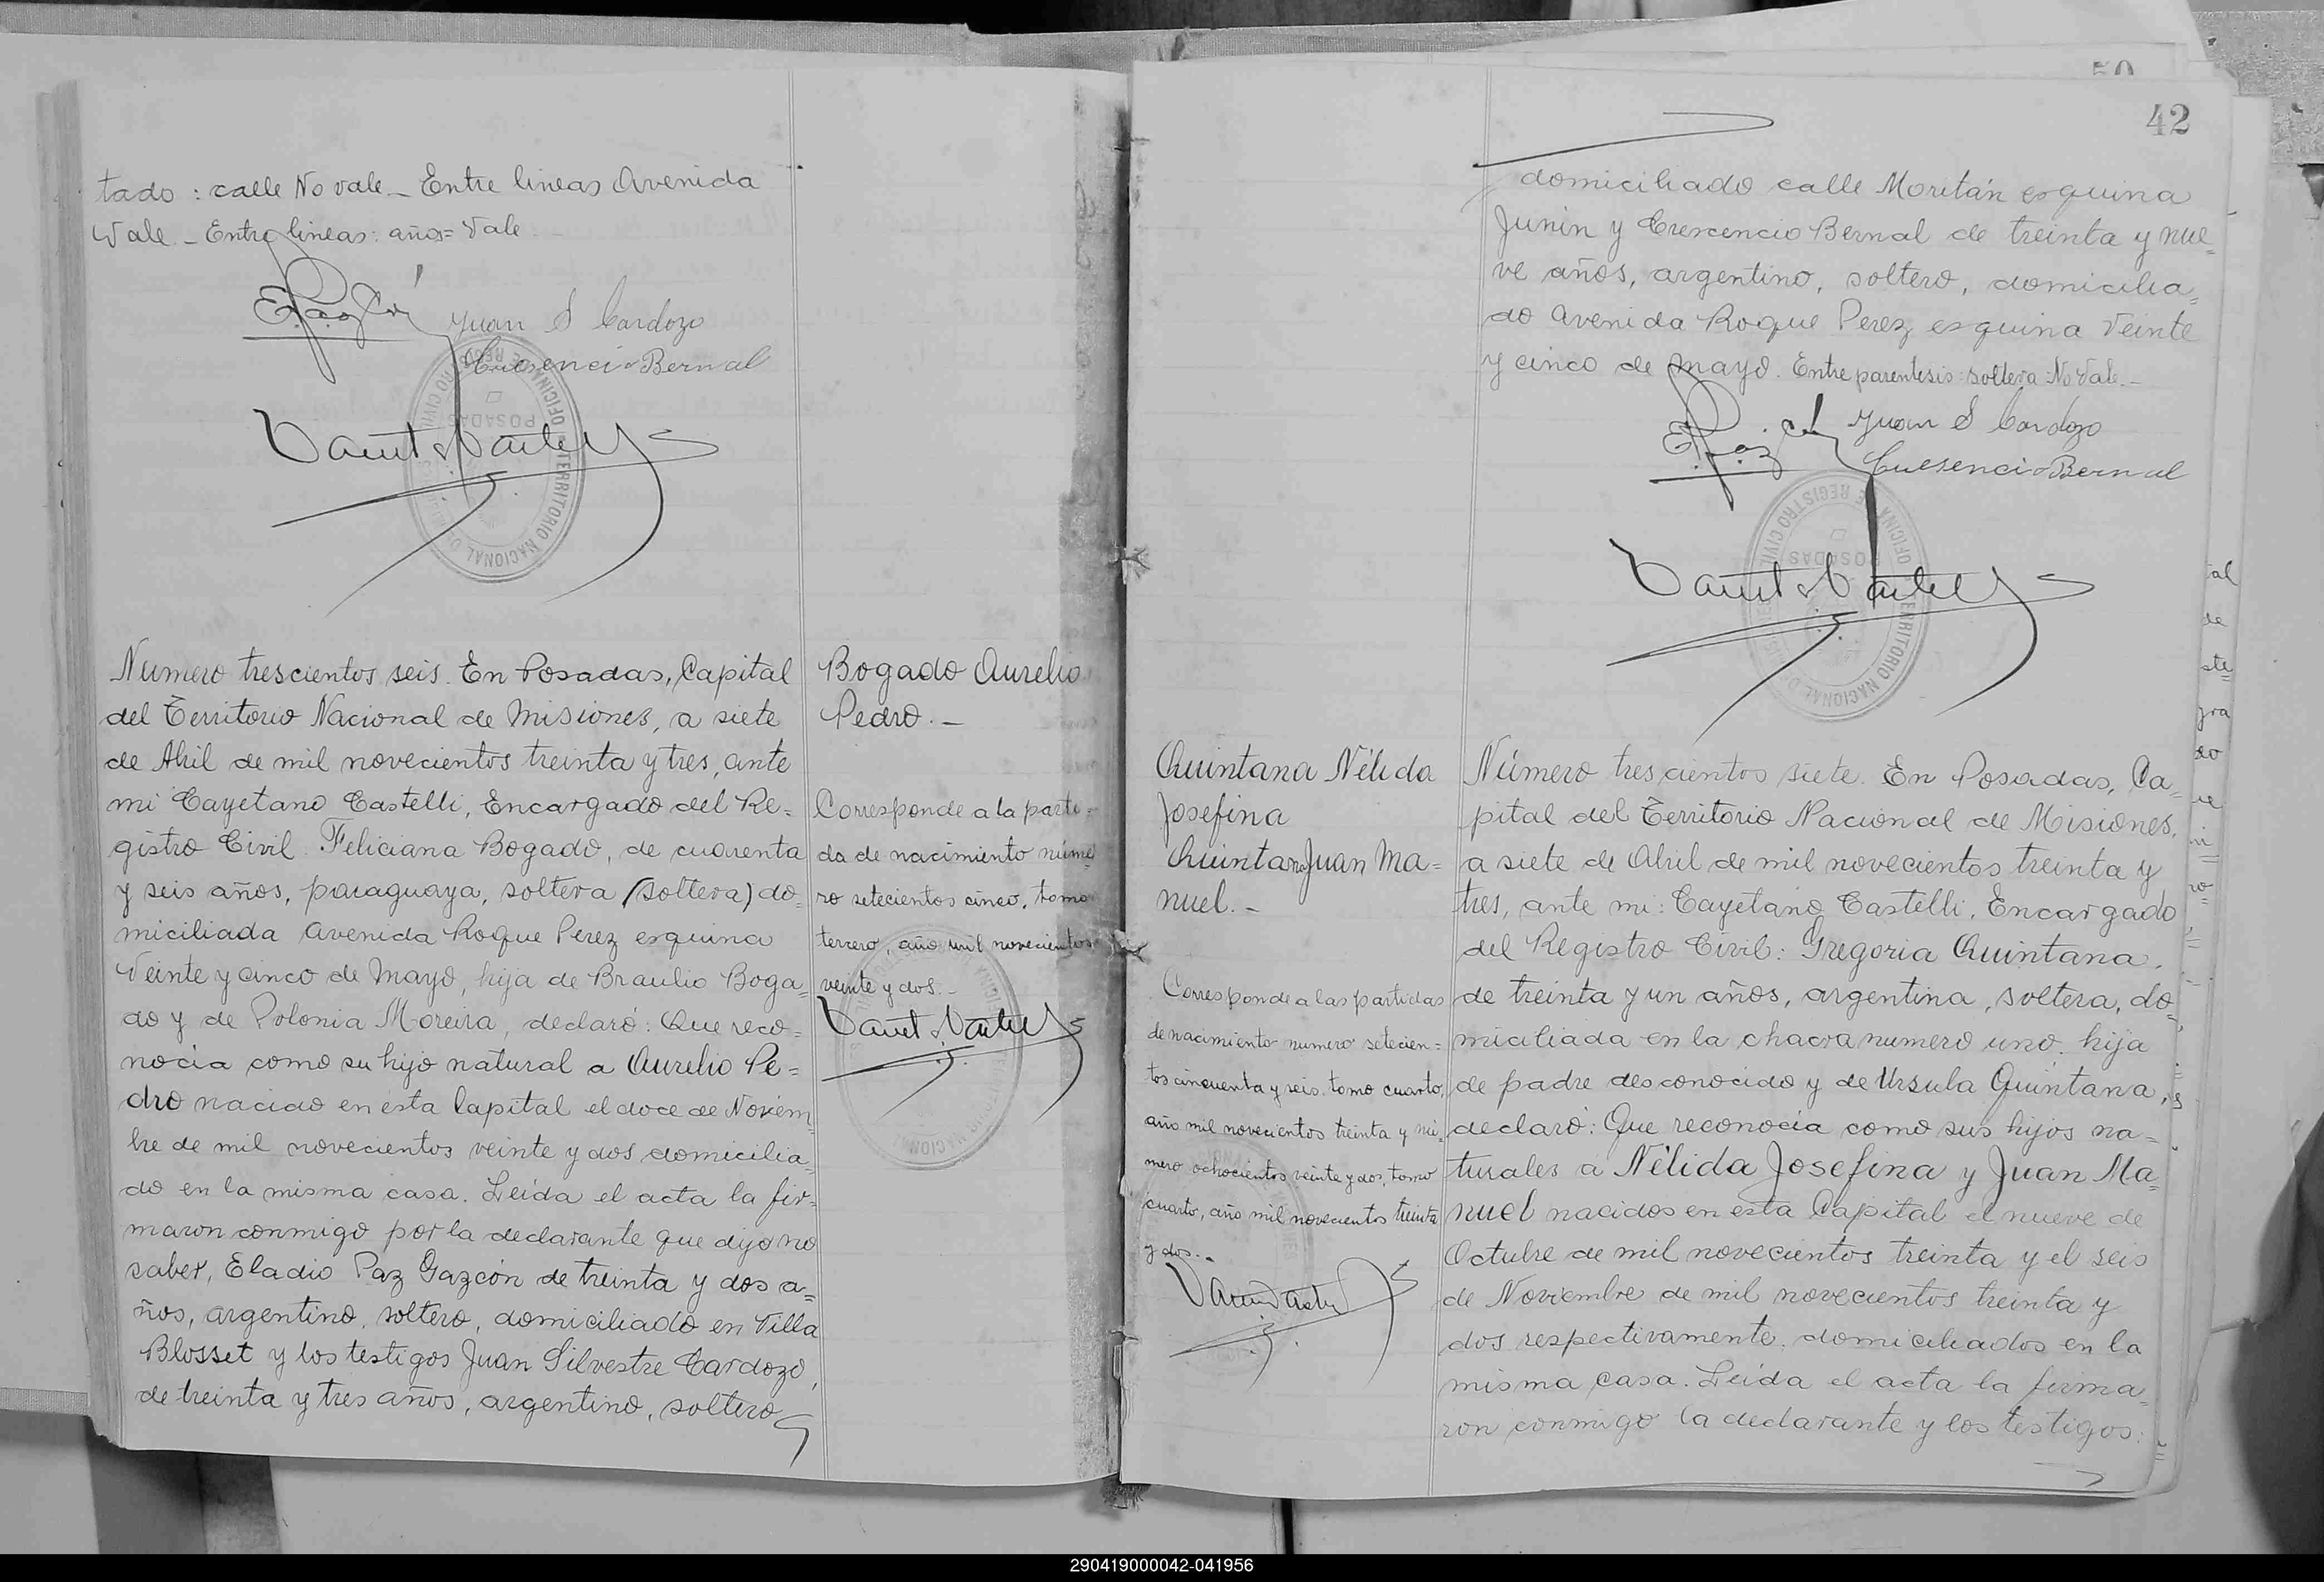 tado : calle No vale _ Entre lineas Avenida
Vale. _ Entre lineas: años= Vale
Juan S Cardozo
Cresencio Bernal
OFICINA DE REGISTRO CIVIL
POSADAS
TERRITORIO NACIONAL DE
Numero trescientos seis. En Posadas, Capital
del Territorio Nacional de Misiones, a siete
de Abril de mil novecientos treinta y tres, ante
mi Cayetano Castelli, Encargado del Re=
gistro Civil Feliciana Bogado, de cuarenta
y seis años, paraguaya, soltera (soltera) do=
miciliada Avenida Roque Perez esquina
Veinte y cinco de Mayo, hija de Braulio Boga=
do y de Polonia Moreira, declaró: Que reco=
nocia como su hijo natural a Aurelio Pe=
dro nacido en esta Capital el doce de Noviem=
bre de mil novecientos veinte y dos domicilia=
do en la misma casa. Leída el acta la fir=
maron conmigo por la declarante que dijo no
saber, Eladio Paz Gazcón de treinta y dos a=
ños, argentino, soltero, domiciliado en Villa
Blosset y los testigos Juan Silvestre Cardozo,
de treinta y tres años, argentino, soltero
Bogado Aurelio
Pedro. _
Corresponde a la parti=
da de nacimiento núme
ro setecientos cinco, tomo
tercero, año mil novecientos
veinte y dos. _
50
42
domiciliado calle Moritán esquina
Junin y Crescencio Bernal de treinta y nue=
ve años, argentino, soltero, domicilia=
do Avenida Roque Perez esquina Veinte
y cinco de Mayo. Entre parentesis: soltera: No Vale. _
Juan S Cardozo
Cresencio Bernal
OFICINA DE REGISTRO CIVIL
POSADAS
TERRITORIO NACIONAL DE
Quintana Nélida
Josefina
Quintana Juan Ma=
nuel. _
Corresponde a las partidas
de nacimiento numero setecien=
tos cincuenta y seis, tomo cuarto,
año mil novecientos treinta y nú=
mero ochocientos veinte y dos, tomo
cuarto, año mil novecientos treinta
y dos. _
Número trescientos siete. En Posadas, Ca=
pital del Territorio Nacional de Misiones,
a siete de Abril de mil novecientos treinta y
tres, ante mi: Cayetano Castelli, Encargado
del Registro Civil: Gregoria Quintana,
de treinta y un años, argentina, soltera, do=
miciliada en la chacra numero uno, hija
de padre desconocido y de Ursula Quintana,
declaró: Que reconocia como sus hijos na=
turales a Nélida Josefina y Juan Ma=
nuel nacidos en esta Capital el nueve de
Octubre de mil novecientos treinta y el seis
de Noviembre de mil novecientos treinta y
dos respectivamente, domiciliados en la
misma casa. Leída el acta la firma=
ron conmigo la declarante y los testigos:
290419000042-041956